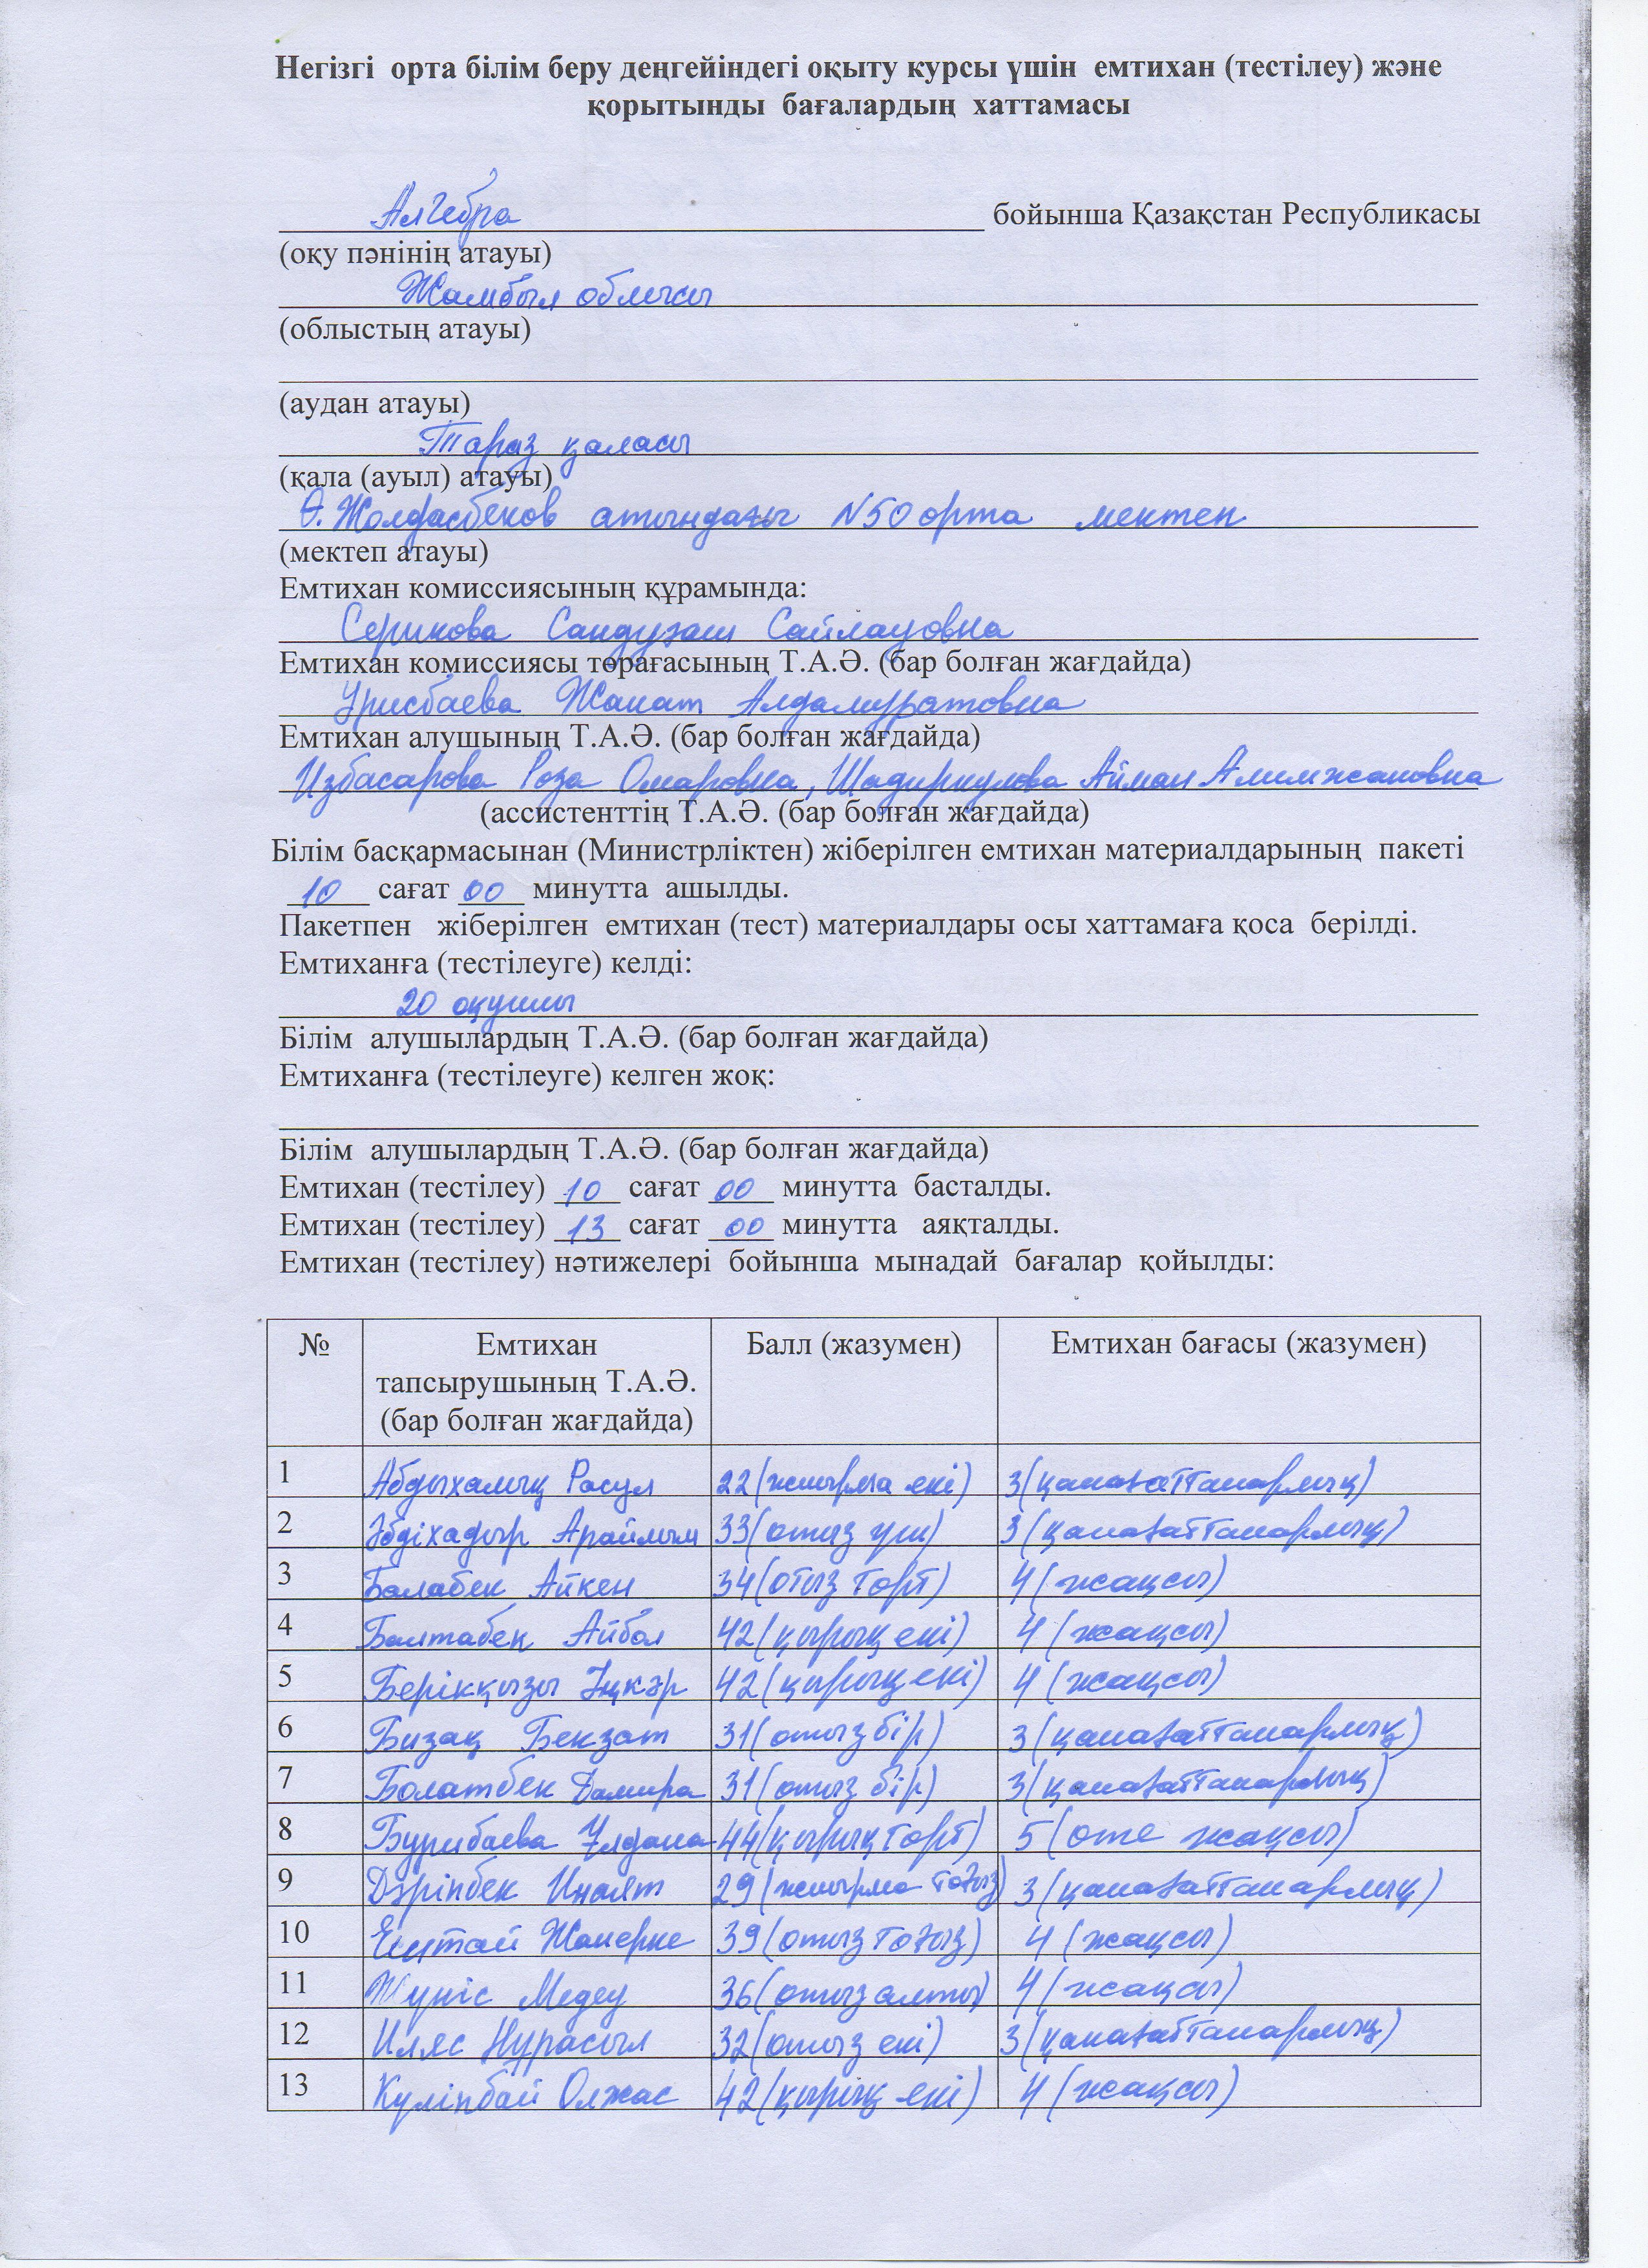 Негізгі орта білім беру деңгейіндегі оқыту курсы үшін емтихан (тестілеу) және
қорытынды бағалардың хаттамасы
Алгебра бойынша Қазақстан Республикасы
(оқу пәнінің атауы)
Жамбыл облысы
(облыстың атауы)
(аудан атауы)
Тараз қаласы
(қала (ауыл) атауы)
Ө. Жолдасбеков атындағы №50 орта мектеп
(мектеп атауы)
Емтихан комиссиясының құрамында:
Серикова Сандуғаш Сайлауовна
Емтихан комиссиясы төрағасының Т.А.Ә. (бар болған жағдайда)
Урисбаева Жанат Алдамуратовна
Емтихан алушының Т.А.Ә. (бар болған жағдайда)
Избасарова Роза Омаровна, Шадиркулова Айман Алимжановна
(ассистенттің Т.А.Ә. (бар болған жағдайда)
Білім басқармасынан (Министрліктен) жіберілген емтихан материалдарының пакеті
10 сағат 00 минутта ашылды.
Пакетпен жіберілген емтихан (тест) материалдары осы хаттамаға қоса берілді.
Емтиханға (тестілеуге) келді:
20 оқушы
Білім алушылардың Т.А.Ә. (бар болған жағдайда)
Емтиханға (тестілеуге) келген жоқ:
Білім алушылардың Т.А.Ә. (бар болған жағдайда)
Емтихан (тестілеу) 10 сағат 00 минутта басталды.
Емтихан (тестілеу) 13 сағат 00 минутта аяқталды.
Емтихан (тестілеу) нәтижелері бойынша мынадай бағалар қойылды:
№ Емтихан тапсырушының Т.А.Ә. (бар болған жағдайда) Балл (жазумен) Емтихан бағасы (жазумен)
1 Абдыхалық Расул 22 (жиырма екі) 3 (қанағаттанарлық)
2 Әбдіхадыр Арайлым 33 (отыз үш) 3 (қанағаттанарлық)
3 Балабек Айкен 34 (отыз төрт) 4 (жақсы)
4 Балтабек Айбол 42 (қырық екі) 4 (жақсы)
5 Берікқызы Іңкәр 42 (қырық екі) 4 (жақсы)
6 Бизақ Бекзат 31 (отыз бір) 3 (қанағаттанарлық)
7 Болатбек Дамира 31 (отыз бір) 3 (қанағаттанарлық)
8 Бурибаева Ұлдана 44 (қырық төрт) 5 (өте жақсы)
9 Дәріпбек Инаят 29 (жиырма тоғыз) 3 (қанағаттанарлық)
10 Ештай Жанерке 39 (отыз тоғыз) 4 (жақсы)
11 Жүніс Медеу 36 (отыз алты) 4 (жақсы)
12 Иляс Нұрасыл 32 (отыз екі) 3 (қанағаттанарлық)
13 Куліпбай Олжас 42 (қырық екі) 4 (жақсы)